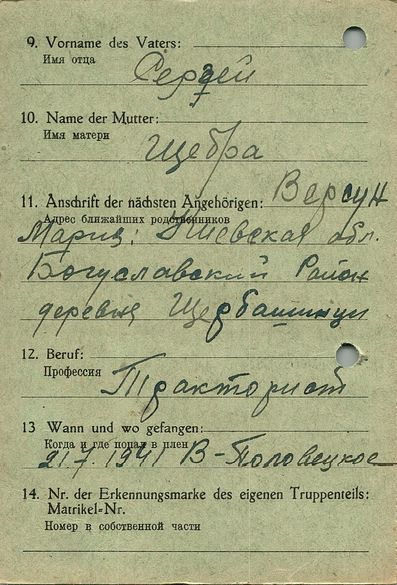 9. Vorname des Vaters:
Имя отца
Сергей
10. Name der Mutter:
Имя матери
Щебра
11. Anschrift der nächsten Angehörigen: Версун
Адрес ближайших родственников
Мария: Киевская обл.
Богуславский Район
деревня Щербашинци
12. Beruf:
Профессия
Тракторист
13 Wann und wo gefangen:
Когда и где попал в плен
21.7.1941 В-Половецкое
14. Nr. der Erkennungsmarke des eigenen Truppenteils:
Matrikel-Nr.
Номер в собственной части